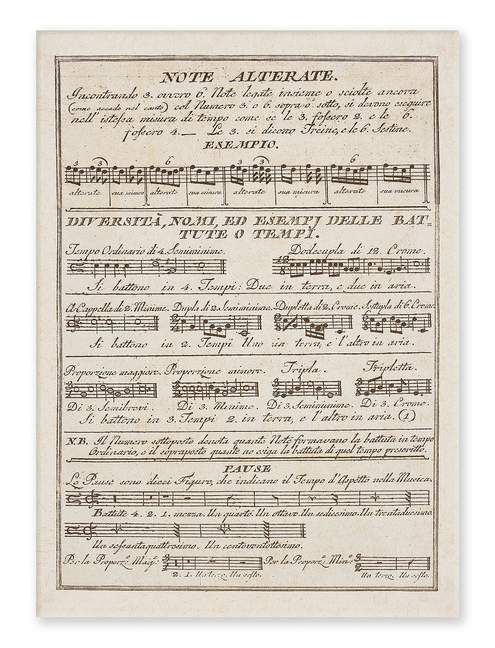 NOTE ALTERATE.
Incontrando 3. ovvero 6. Note legate insieme o sciolte ancora
(come accade nel canto) col Numero 3. o 6. sopra o sotto, si devono eseguire
nell' istessa misura di tempo come se le 3. fossero 2. e le 6.
fossero 4. — Le 3. si dicono Treine, e le 6. Sestine.
ESEMPIO.
3 3 6 6 3 3 6 6
alterate sua misura alterate sua misura alterate sua misura alterate sua misura
DIVERSITÀ, NOMI, ED ESEMPJ DELLE BAT-
TUTE O TEMPI.
Tempo Ordinario di 4. Semiminime. Dodecupla di 12. Crome.
Si battono in 4. Tempi: Due in terra, e due in aria.
A Cappella di 2. Minime. Dupla di 2. Semiminime. Dupletta di 2. Crome. Sestupla di 6. Crome.
Si battono in 2. Tempi Uno in terra, e l'altro in aria.
Proporzione maggiore. Proporzione minore. Tripla. Tripletta.
Di 3. Semibrevi. Di 3. Minime. Di 3. Semiminime. Di 3. Crome.
Si battono in 3. Tempi 2. in terra, e l'altro in aria. (1)
N.B. Il Numero sottoposto denota quante Note formavano la battuta in tempo
Ordinario, e il sopraposto quante ne esiga la battuta di quel tempo prescritto.
PAUSE
Le Pause sono dieci Figure, che indicano il Tempo d'Aspetto nella Musica.
Battute 4. 2. 1. mezza. Un quarto. Un ottavo. Un sedicesimo. Un trentaduesimo.
Un sessantaquattresimo. Un centoventottesimo.
Per la Proporz.e Mag.e Per la Proporz.e Min.e
2. 1. Un terzo. Un sesto. Un terzo. Un sesto.